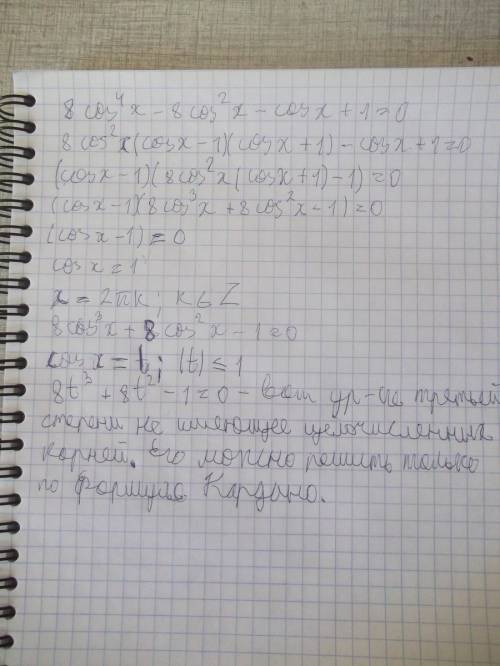 8 cos⁴x - 8 cos²x - cos x + 1 = 0
8 cos²x (cos x - 1)(cos x + 1) - cos x + 1 = 0
(cos x - 1)(8 cos²x (cos x + 1) - 1) = 0
(cos x - 1)(8 cos³x + 8 cos²x - 1) = 0
(cos x - 1) = 0
cos x = 1
x = 2πk; k ∈ Z
8 cos³x + 8 cos²x - 1 = 0
cos x = t; |t| ≤ 1
8t³ + 8t² - 1 = 0 - ур-ие третьей
степени не имеющее целочисленных
корней. Его можно решить только
по формуле Кардано.